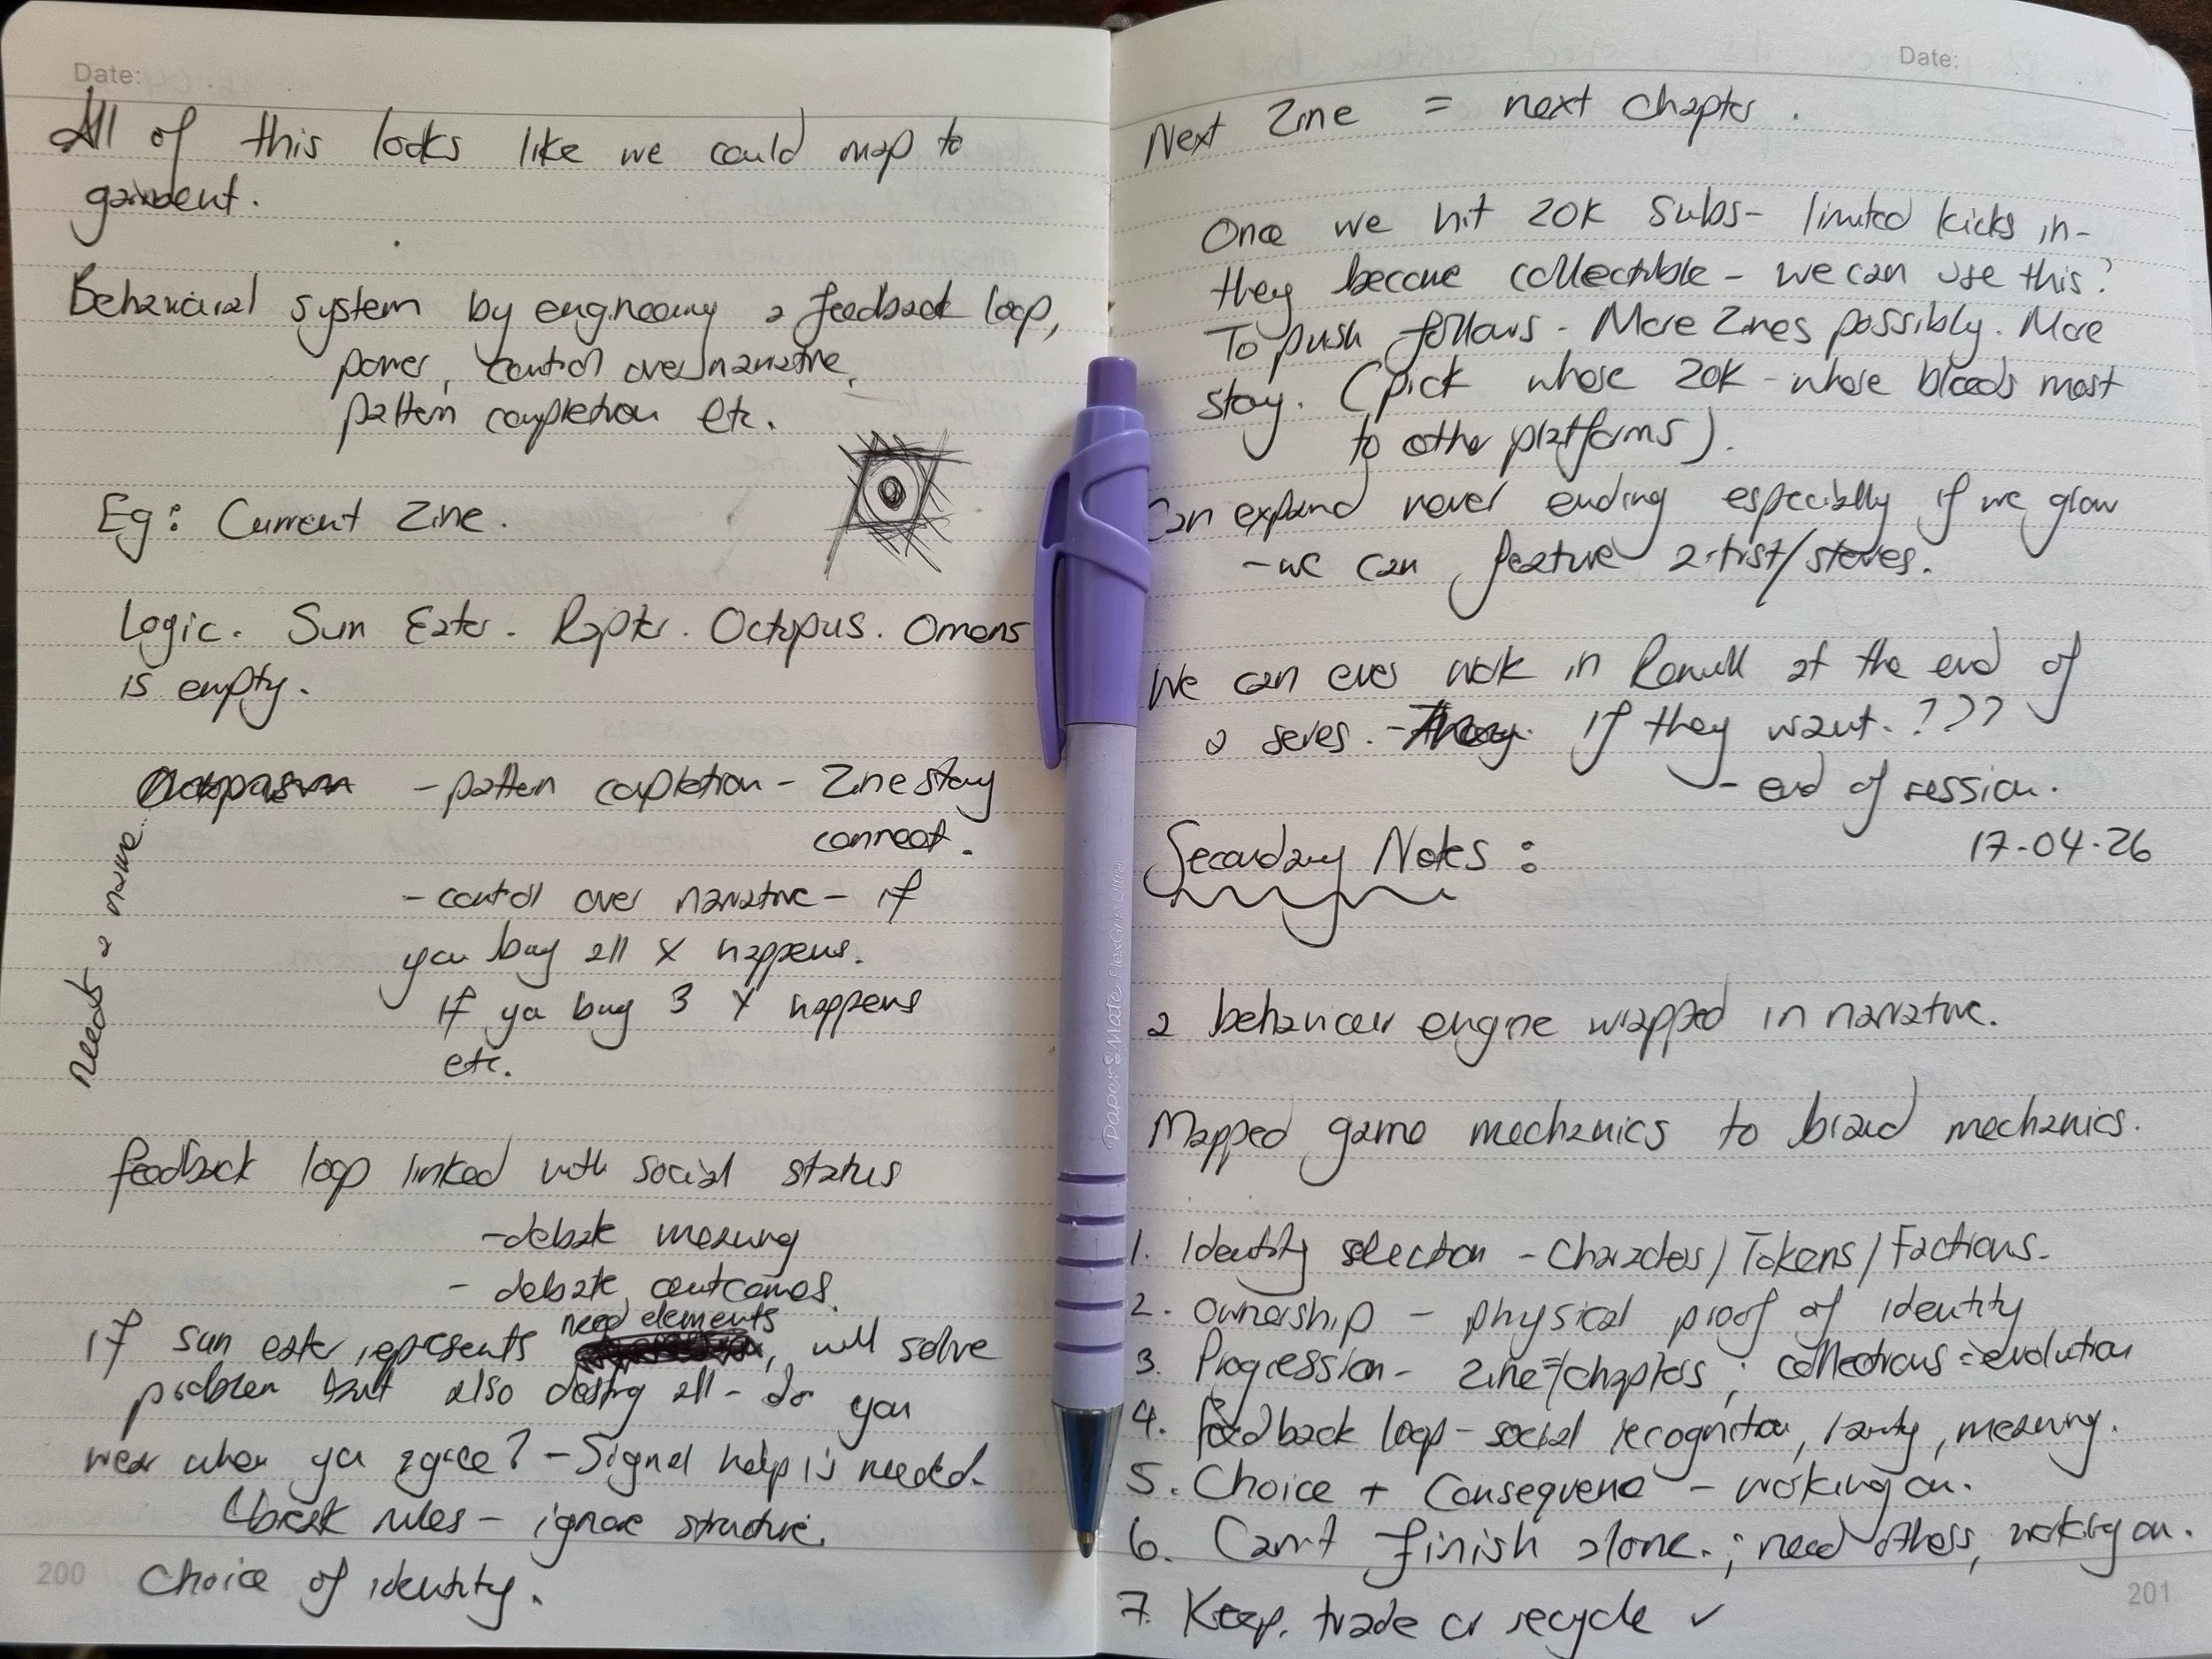 Date:
All of this looks like we could map to
garment.
Behavioural system by engineering a feedback loop,
power, control over narrative,
pattern completion etc.
Eg: Current Zine.
Logic. Sun Eater. Raptor. Octopus. Omens
is empty.
- pattern completion - Zine story
connect.
- control over narrative - if
you buy all X happens.
If you buy 3 Y happens
etc.
needs a name.
feedback loop linked with social status
- debate meaning
- debate outcomes.
need elements
If sun eater represents , will solve
problem but also destroy all - do you
wear when you agree? - Signal help is needed.
break rules - ignore structure.
Choice of identity.
200
Date:
Next Zine = next chapter.
Once we hit 20K subs - limited kicks in -
they become collectible - we can use this?
To push follows - More Zines possibly. More
story. (pick whose 20K - whose bleeds most
to other platforms).
Can expand never ending especially if we grow
- we can feature artist/stores.
We can even work in at the end of
a series. - If they want. ???
- end of session.
17-04-26
Secondary Notes:
a behaviour engine wrapped in narrative.
Mapped game mechanics to brand mechanics.
1. Identity selection - Characters/Tokens/Factions.
2. Ownership - physical proof of identity
3. Progression - zine=/chapters; collections = evolution
4. feedback loop - social recognition, rarity, meaning.
5. Choice + Consequence - working on.
6. Can't finish alone.; need others, working on.
7. Keep, trade or recycle ✓
Paper Mate FlexGrip Ultra